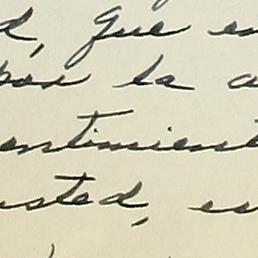 d, que en
por la a
entimient
usted, es